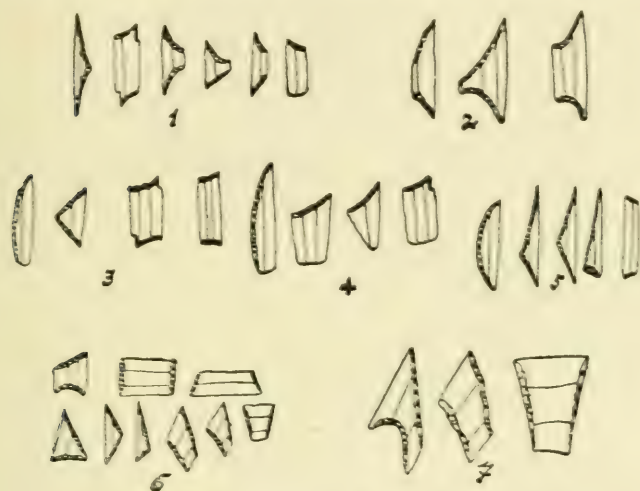 1
2
3
4
5
6
7